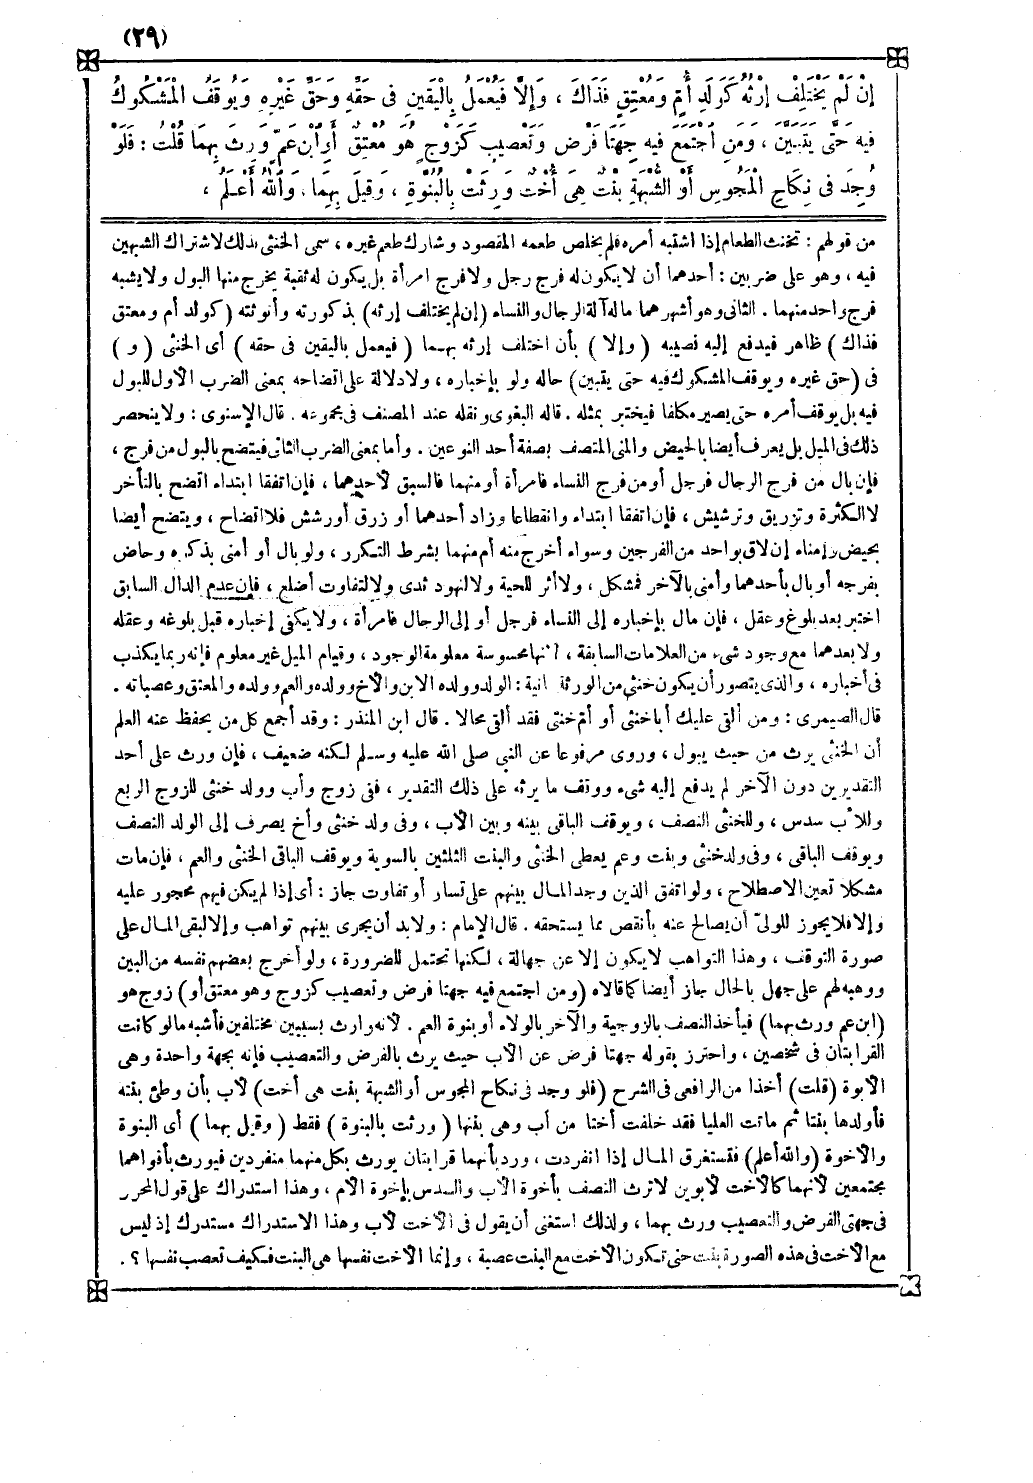 (٢٩)
إِنْ لَمْ يَخْتَلِفْ إِرْثُهُ كَوَلَدِ أُمٍّ وَمُعْتِقٍ فَذَاكَ ، وَإِلَّا فَيُعْمَلُ بِالْيَقِينِ فِى حَقِّهِ وَحَقِّ غَيْرِهِ وَيُوقَفُ الْمَشْكُوكُ
فِيهِ حَتَّى يَتَبَيَّنَ ، وَمَنِ اجْتَمَعَ فِيهِ جِهَتَا فَرْضٍ وَتَعْصِيبٍ كَزَوْجٍ هُوَ مُعْتِقٌ أَوِ ابْنُ عَمٍّ وَرِثَ بِهِمَا قُلْتُ : فَلَوْ
وُجِدَ فِى نِكَاحِ الْمَجُوسِ أَوِ الشُّبْهَةِ بِنْتٌ هِىَ أُخْتٌ وَرِثَتْ بِالْبُنُوَّةِ ، وَقِيلَ بِهِمَا ، وَاللهُ أَعْلَمُ ،
من قولهم : تخنث الطعام إذا اشتبه أمره فلم يخلص طعمه المقصود وشارك طعم غيره ، سمى الخنثى بذلك لاشتراك الشبهين
فيه ، وهو على ضربين : أحدهما أن لا يكون له فرج رجل ولا فرج امرأة بل يكون له ثقبة يخرج منها البول ولا يشبه
فرج واحد منهما . الثانى وهو أشهرهما ماله آلة الرجال والنساء (إن لم يختلف إرثه) بذكورته وأنوثته (كولد أم ومعتق
فذاك) ظاهر فيدفع إليه نصيبه (وإلا) بأن اختلف إرثه بهما (فيعمل باليقين فى حقه) أى الخنثى (و)
فى (حق غيره ويوقف المشكوك فيه حتى يتبين) حاله ولو بإخباره ، ولا دلالة على اتضاحه بمعنى الضرب الأول للبول
فيه بل يوقف أمره حتى يصير مكلفا فيختبر بمثله . قاله البغوى ونقله عند المصنف فى مجموعه . قال الإسنوى : ولا ينحصر
ذلك فى الميل بل يعرف أيضا بالحيض والمنى المتصف بصفة أحد النوعين . وأما بمعنى الضرب الثانى فيتضح بالبول من فرج ،
فإن بال من فرج الرجال فرجل أو من فرج النساء فامرأة أو منهما فالسبق لأحدهما ، فإن اتفقا ابتداء اتضح بالتأخر
لا الكثرة وتزريق وترشيش ، فإن اتفقا ابتداء وانقطاعا وزاد أحدهما أو زرق أو رشش فلا اتضاح ، ويتضح أيضا
بحيض وإمناء إن لاق بواحد من الفرجين وسواء أخرج منه أم منهما بشرط التكرر ، ولو بال أو أمنى بذكره وحاض
بفرجه أو بال بأحدهما وأمنى بالآخر فمشكل ، ولا أثر للحية ولا لنهود ثدى ولا لتفاوت أضلع ، فإن عدم الدال السابق
اختبر بعد بلوغ وعقل ، فإن مال بإخباره إلى النساء فرجل أو إلى الرجال فامرأة ، ولا يكفى إخباره قبل بلوغه وعقله
ولا بعدهما مع وجود شىء من العلامات السابقة ، لأنها محسوسة معلومة الوجود ، وقيام الميل غير معلوم فإنه ربما يكذب
فى أخباره ، والذى يتصور أن يكون خنثى من الورثة ثمانية : الولد وولده الابن والأخ وولده والعم وولده والمعتق وعصباته .
قال الصيمرى : ومن ألقى عليك أبا خنثى أو أم خنثى فقد ألقى محالا . قال ابن المنذر : وقد أجمع كل من يحفظ عنه العلم
أن الخنثى يرث من حيث يبول ، وروى مرفوعا عن النبى صلى الله عليه وسلم لكنه ضعيف ، فإن ورث على أحد
التقديرين دون الآخر لم يدفع إليه شىء ووقف ما يرثه على ذلك التقدير ، ففى زوج وأب وولد خنثى للزوج الربع
وللأب سدس ، وللخنثى النصف ، ويوقف الباقى بينه وبين الأب ، وفى ولد خنثى وأخ يصرف إلى الولد النصف
ويوقف الباقى ، وفى ولد خنثى وبنت وعم يعطى الخنثى والبنت الثلثين بالسوية ويوقف الباقى الخنثى والعم ، فإن مات
مشكلا تعين الاصطلاح ، ولو اتفق الذين وجد المال بينهم على تساو أو تفاوت جاز : أى إذا لم يكن فيهم محجور عليه
وإلا فلا يجوز للولى أن يصالح عنه بأنقص مما يستحقه . قال الإمام : ولا بد أن يجرى بينهم تواهب وإلا لبقى المال على
صورة التوقف ، وهذا التواهب لا يكون إلا عن جهالة ، لكنها تحتمل للضرورة ، ولو أخرج بعضهم نفسه من البين
ووهبه لهم على جهل بالحال جاز أيضا كما قالاه (ومن اجتمع فيه جهتا فرض وتعصيب كزوج وهو معتق أو) زوج هو
(ابن عم ورث بهما) فيأخذ النصف بالزوجية والآخر بالولاء أو بنوة العم . لأنه وارث بسببين مختلفين فأشبه ما لو كانت
القرابتان فى شخصين ، واحترز بقوله جهتا فرض عن الأب حيث يرث بالفرض والتعصيب فإنه بجهة واحدة وهى
الأبوة (قلت) أخذا من الرافعى فى الشرح (فلو وجد فى نكاح المجوس أو الشبهة بنت هى أخت) لأب بأن وطئ بنته
فأولدها بنتا ثم ماتت العليا فقد خلفت أختا من أب وهى بنتها (ورثت بالبنوة) فقط (وقيل بهما) أى البنوة
والأخوة (والله أعلم) فتستغرق المال إذا انفردت ، ورد بأنهما قرابتان يورث بكل منهما منفردين فيورث بأقواهما
مجتمعين لأنهما كالأخت لأبوين لا ترث النصف بأخوة الأب والسدس بإخوة الأم ، وهذا استدراك على قول المحرر
فى جهتى الفرض والتعصيب ورث بهما ، ولذلك استغنى أن يقول فى الأخت لأب وهذا الاستدراك مستدرك إذ ليس
مع الأخت فى هذه الصورة بنت حتى تكون الأخت مع البنت عصبة ، وإنما الأخت نفسها هى البنت فكيف تعصب نفسها ؟ .